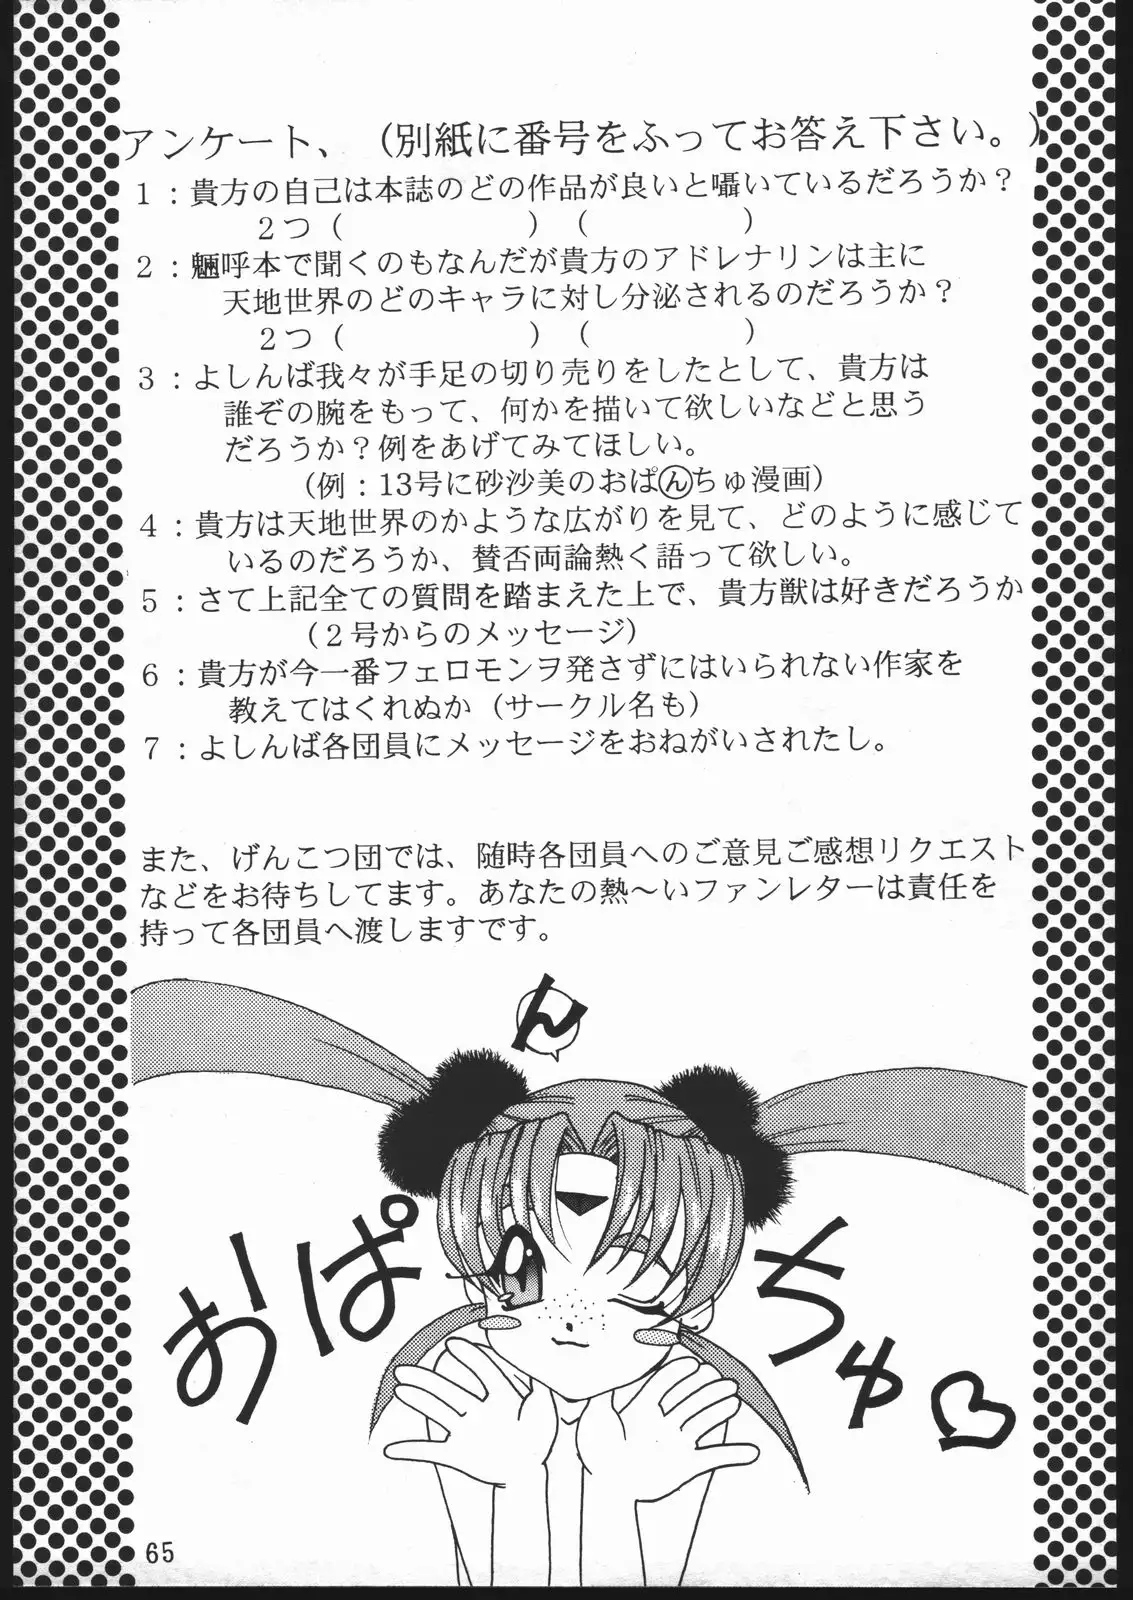 アンケート、（別紙に番号をふってお答え下さい。）
１：貴方の自己は本誌のどの作品が良いと囁いているだろうか？
２つ（　　　　　　　　）（　　　　　　　）
２：魎呼本で聞くのもなんだが貴方のアドレナリンは主に
天地世界のどのキャラに対し分泌されるのだろうか？
２つ（　　　　　　　　）（　　　　　　　）
３：よしんば我々が手足の切り売りをしたとして、貴方は
誰ぞの腕をもって、何かを描いて欲しいなどと思う
だろうか？例をあげてみてほしい。
（例：13号に砂沙美のおぱんちゅ漫画）
４：貴方は天地世界のかような広がりを見て、どのように感じて
いるのだろうか、賛否両論熱く語って欲しい。
５：さて上記全ての質問を踏まえた上で、貴方獣は好きだろうか
（２号からのメッセージ）
６：貴方が今一番フェロモンヲ発さずにはいられない作家を
教えてはくれぬか（サークル名も）
７：よしんば各団員にメッセージをおねがいされたし。
また、げんこつ団では、随時各団員へのご意見ご感想リクエスト
などをお待ちしてます。あなたの熱〜いファンレターは責任を
持って各団員へ渡しますです。
おぱ
ん
ちゅ♡
65